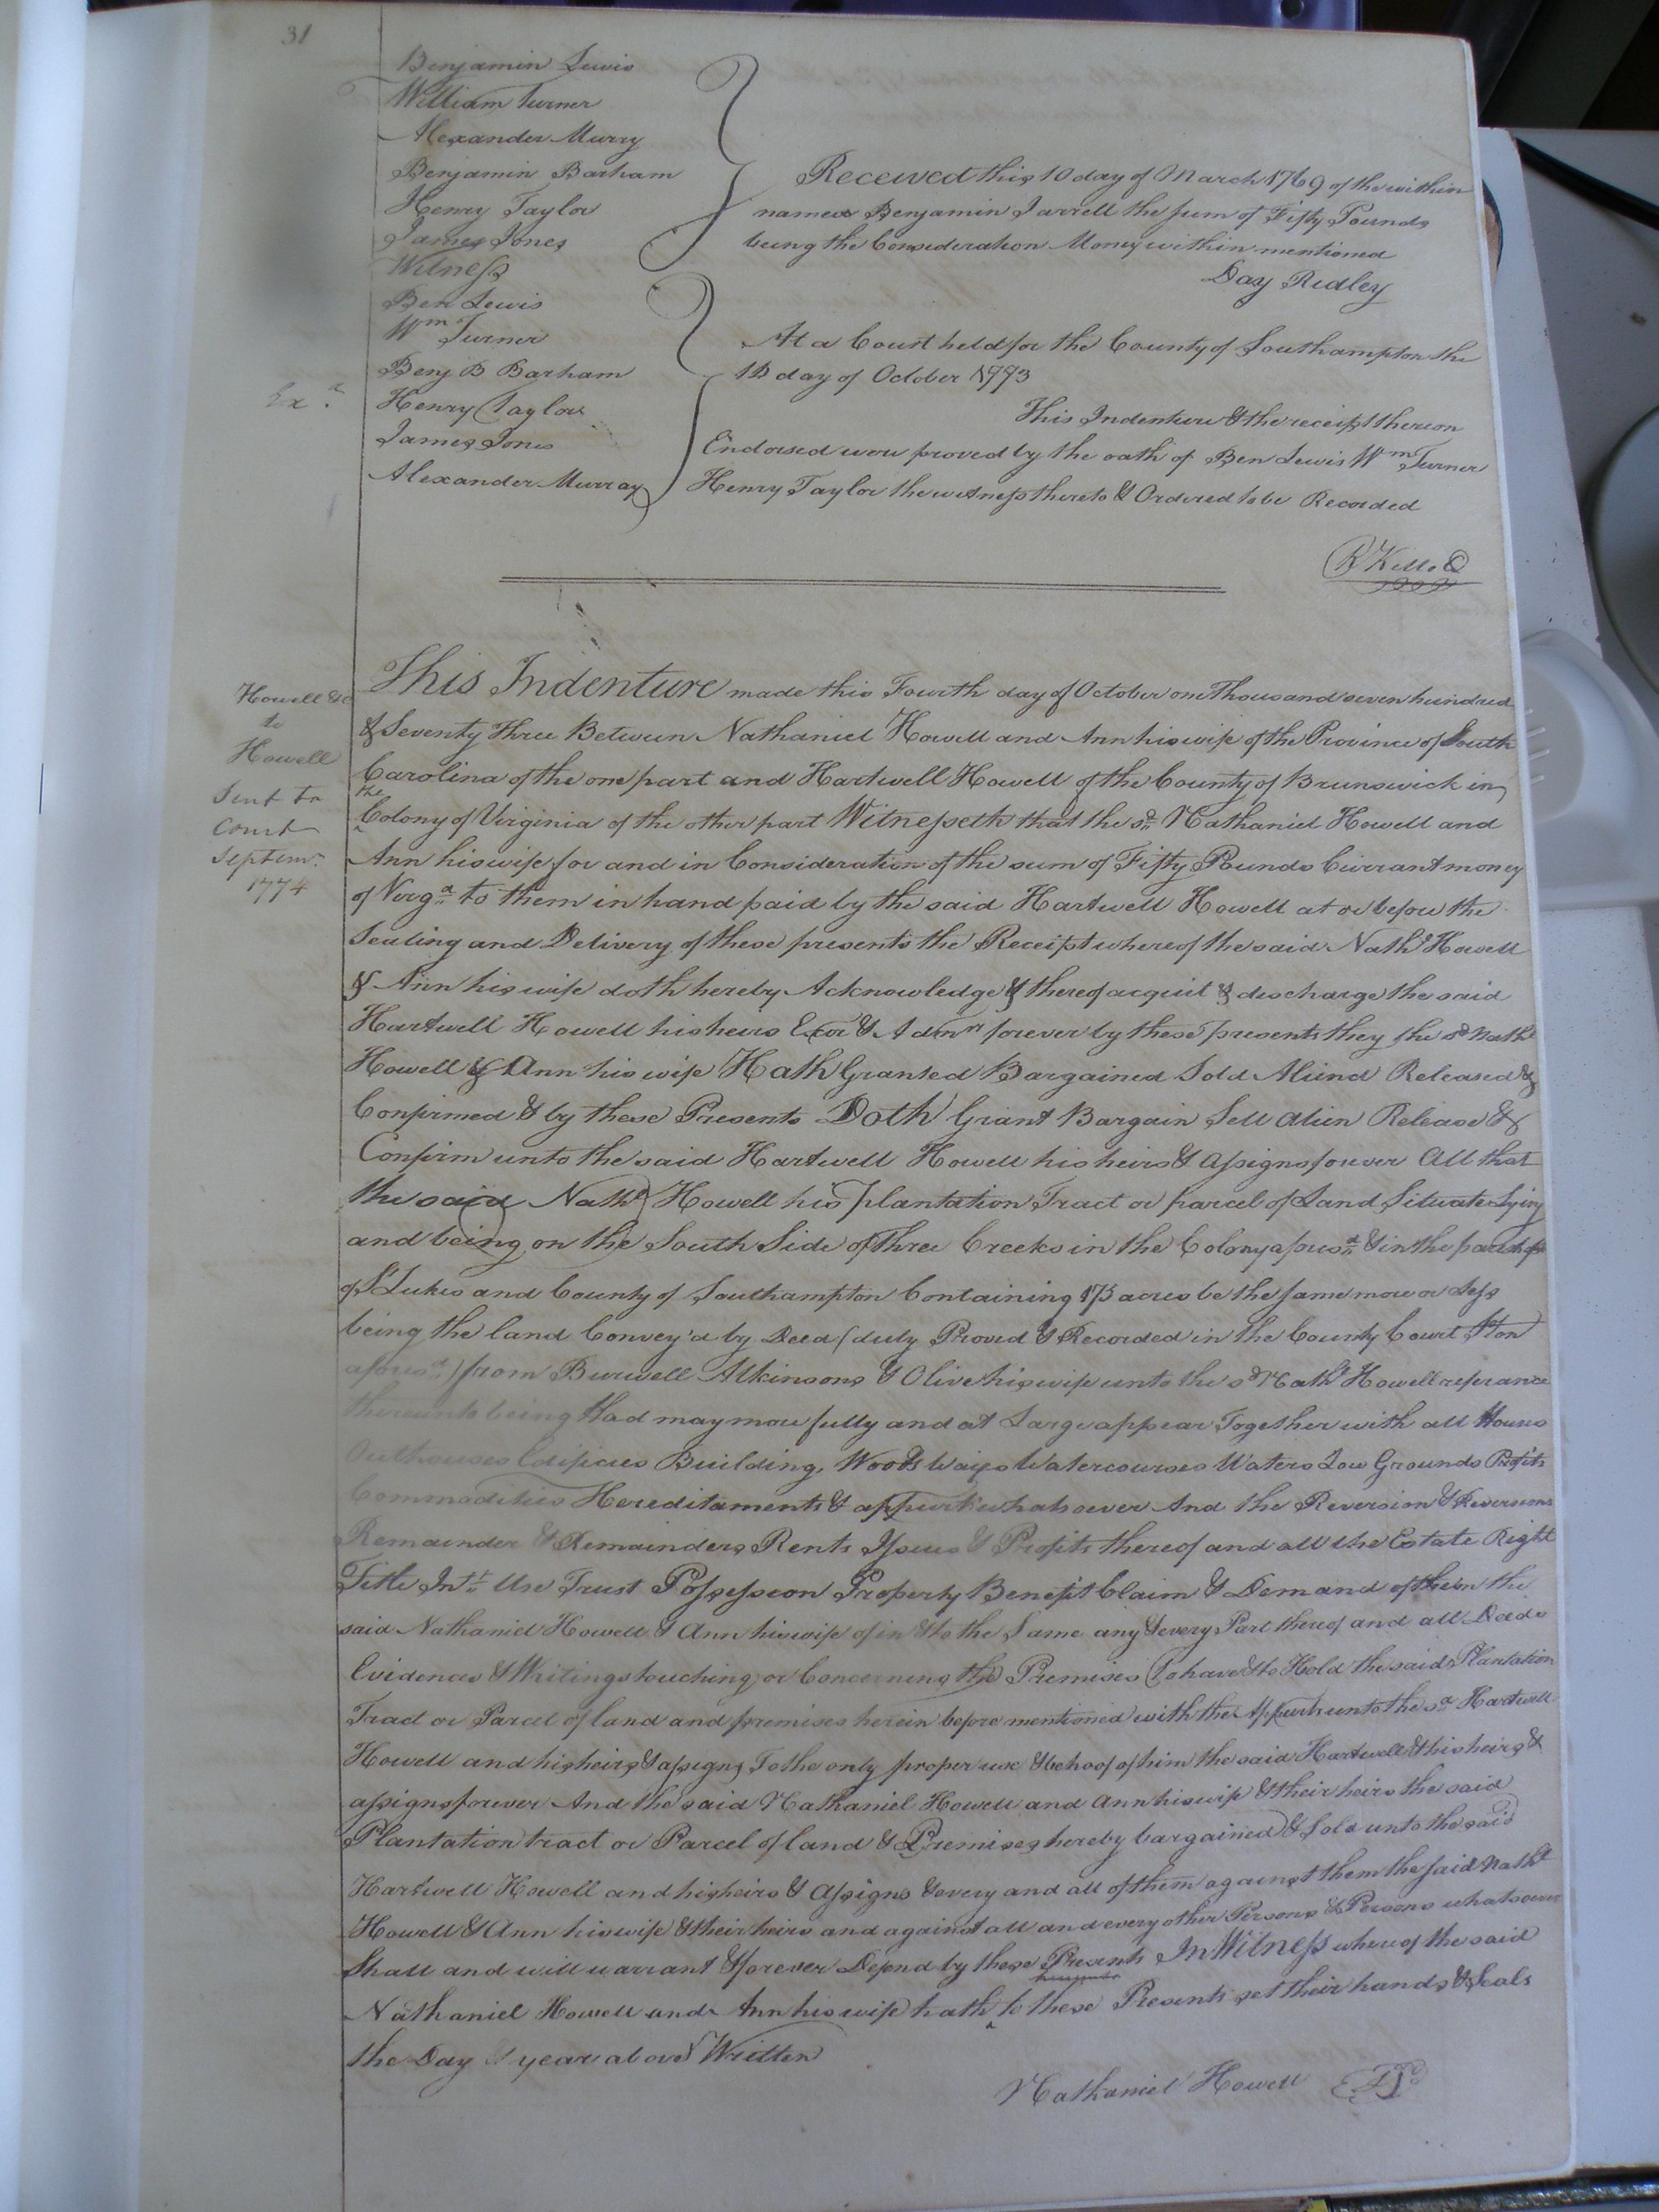 31
Benjamin Lewis
William Turner
Alexander Murry
Benjamin Barham
Henry Taylor
James Jones
Received this 10 day of March 1769 of the within
named Benjamin Jarrell the sum of Fifty Pounds
being the Consideration Money within mentioned
Day Ridley
Witness
Ben Lewis
Wm Turner
Benj B Barham
Henry Taylor
James Jones
Alexander Murray
Exd
At a Court held for the County of Southampton the
day of October 1773
This Indenture & the receipt thereon
Endorsed were proved by the oath of Ben Lewis Wm Turner
Henry Taylor the witness thereto & Ordered to be Recorded
R Kello C
Howell &c
to
Howell
Sent to
Court
Septemr
1774
This Indenture made this Fourth day of October one Thousand seven hundred
& Seventy Three Between Nathaniel Howell and Ann his wife of the Province of South
Carolina of the one part and Hartwell Howell of the County of Brunswick in
the Colony of Virginia of the other part Witnesseth that the sd Nathaniel Howell and
Ann his wife for and in Consideration of the sum of Fifty Pounds Currant money
of Virga to them in hand paid by the said Hartwell Howell at or before the
Sealing and Delivery of these presents the Receipt whereof the said Nathl Howell
& Ann his wife doth hereby Acknowledge & thereof acquit & discharge the said
Hartwell Howell his heirs Exor & Admrs forever by these presents they the sd Nathl
Howell & Ann his wife Hath Granted Bargained Sold Aliend Released &
Confirmed & by these Presents Doth Grant Bargain Sell Alien Release &
Confirm unto the said Hartwell Howell his heirs & assigns forever All that
the said Nathl Howell his plantation Tract or parcel of Land Situate Lying
and being on the South Side of Three Creeks in the Colony aforesd & in the parish
of St Lukes and County of Southampton Containing 173 acres be the same more or less
being the land Convey'd by Deed (duly Proved & Recorded in the County Court Ston
aforesd) from Burwell Atkinsons & Olive his wife unto the sd Nathl Howell referance
thereunto being Had may more fully and at Large appear Together with all Houses
Outhouses Edifices Building, Woods Ways Watercourses Waters Low Grounds Profits
Commodities Hereditaments & appurts whatsoever And the Reversion & Reversions
Remainder & Remainders Rents Issues & Profits thereof and all the Estate Right
Title Intt Use Trust Possession Property Benefit Claim & Demand of them the
said Nathaniel Howell & Ann his wife of in & to the Same any & every Part thereof and all Deeds
Evidences & Writings touching or Concerning the Premises To have & to Hold the said Plantation
Tract or Parcel of land and premises herein before mentioned with the Appurts unto the sd Hartwell
Howell and his heirs & assigns To the only proper use & behoof of him the said Hartwell & his heirs &
assigns forever And the said Nathaniel Howell and Ann his wife & their heirs the said
Plantation tract or Parcel of land & Premises hereby bargained & Sold unto the said
Hartwell Howell and his heirs & Assigns & every and all of them against them the said Nathl
Howell & Ann his wife & their heirs and against all and every other Persons & Persons whatsoever
Shall and will warrant & forever Defend by these Presents In Witness whereof the said
Nathaniel Howell and Ann his wife hath hereunto to these Presents set their hands & Seals
the Day & year above Written
Nathaniel Howell